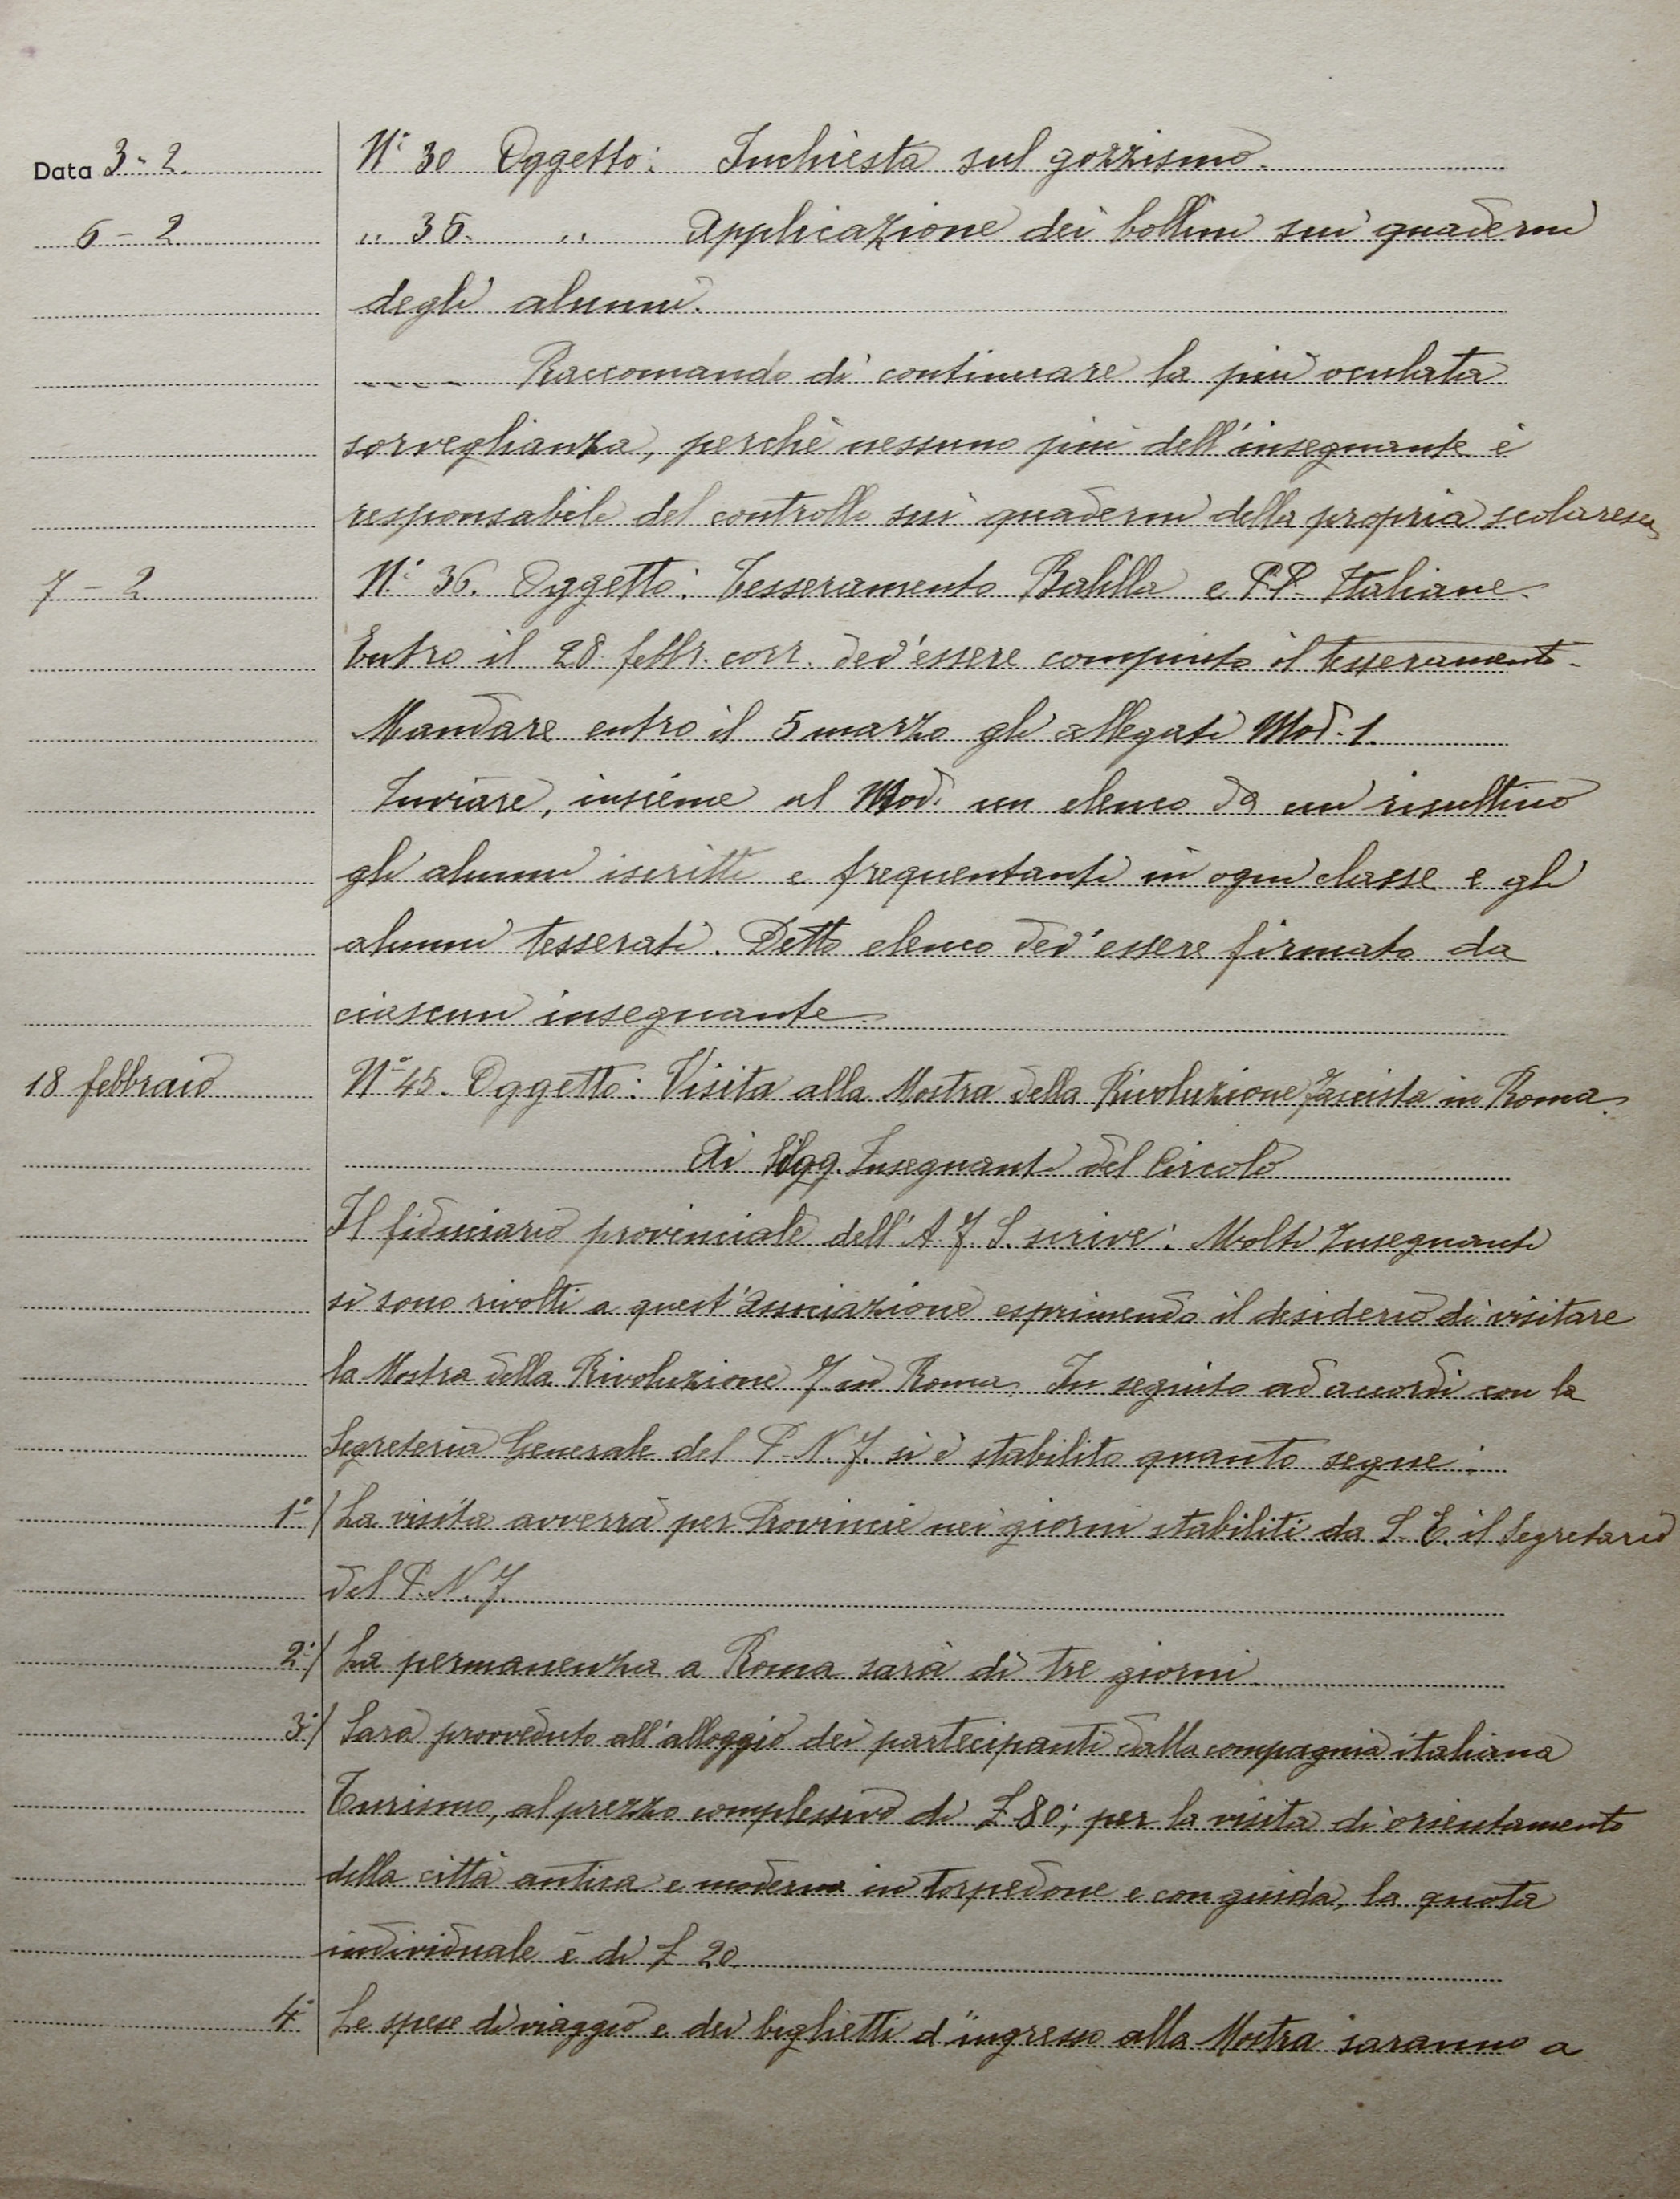 Data 3-2. N° 30 Oggetto: Inchiesta sul gozzismo.
6-2 " 35. " Applicazione dei bollini sui quaderni
degli alunni.
---- Raccomando di continuare la più oculata
sorveglianza, perchè nessuno più dell'insegnante è
responsabile del controllo sui quaderni della propria scolaresca
7-2 N° 36. Oggetto: Tesseramento Balilla e P.P. Italiane.
Entro il 28 febbr. corr. dev'essere compiuto il tesseramento.
Mandare entro il 5 marzo gli allegati Mod. 1.
Inviare, insieme al Mod. un elenco da cui risultino
gli alunni iscritti e frequentanti in ogni classe e gli
alunni tesserati. Detto elenco dev'essere firmato da
ciascun insegnante.
18 febbraio N° 45. Oggetto: Visita alla Mostra della Rivoluzione Fascista in Roma.
Ai Sigg. Insegnanti del Circolo
Il fiduciario provinciale dell'A. F. S. scrive: Molti Insegnanti
si sono rivolti a quest'Associazione esprimendo il desiderio di visitare
la Mostra della Rivoluzione F. in Roma. In seguito ad accordi con la
Segreteria Generale del P.N.F. si è stabilito quanto segue:
1°/ La visita avverrà per Provincie nei giorni stabiliti da S. E. il Segretario
del P.N.F.
2°/ La permanenza a Roma sarà di tre giorni.
3°/ Sarà provveduto all'alloggio dei partecipanti dalla compagnia italiana
Turismo, al prezzo complessivo di £ 80; per la visita di orientamento
della città antica e moderna in torpedone e con guida, la quota
individuale è di £ 20.
4° Le spese di viaggio e dei biglietti d'ingresso alla Mostra saranno a